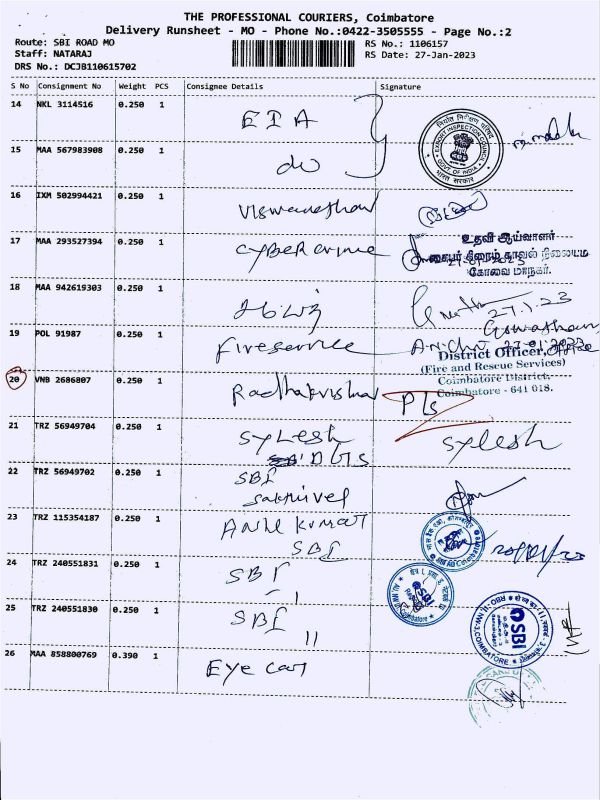 THE PROFESSIONAL COURIERS, Coimbatore
Delivery Runsheet - MO - Phone No.:0422-3505555 - Page No.:2
Route: SBI ROAD MO
RS No.: 1106157
Staff: NATARAJ
RS Date: 27-Jan-2023
DRS No.: DCJB110615702
S No Consignment No Weight PCS Consignee Details Signature
14 NKL 3114516 0.250 1 EIA
EXPORT INSPECTION COUNCIL
GOVT. OF INDIA
भारत सरकार
15 MAA 567983908 0.250 1 do
16 IXM 502994421 0.250 1 Viswanathan
17 MAA 293527394 0.250 1 cyber crime
உதவி ஆய்வாளர்
சைபர் கிரைம் காவல் நிலையம்
கோவை மாநகர்.
18 MAA 942619303 0.250 1
27.1.23
19 POL 91987 0.250 1 Fireservice
District Officer,
(Fire and Rescue Services)
Coimbatore District,
Coimbatore - 641 018.
20 VNB 2686807 0.250 1 Radhakrishnan
21 TRZ 56949704 0.250 1 Sylesh Sylesh
22 TRZ 56949702 0.250 1 SBI
Sakthivel
23 TRZ 115354187 0.250 1 Anil kumar
SBI
24 TRZ 240551831 0.250 1 SBI
I
SBI
25 TRZ 240551830 0.250 1 SBI
II
SBI
26 MAA 858800769 0.390 1 Eye car